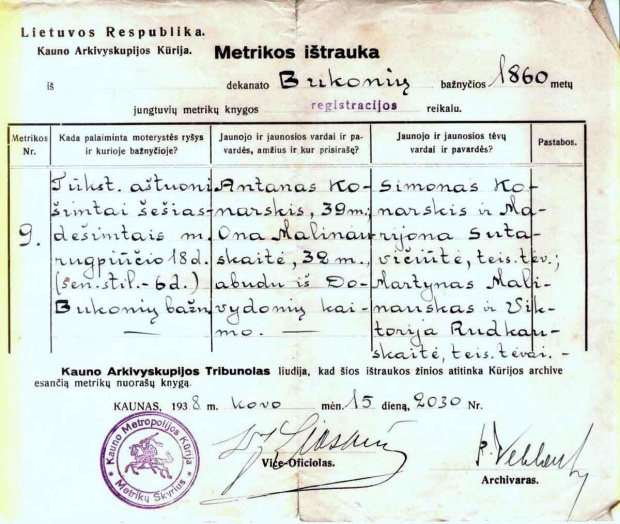 Lietuvos Respublika.
Kauno Arkivyskupijos Kūrija.
Metrikos ištrauka
iš dekanato Bukonių bažnyčios 1860 metų
jungtuvių metrikų knygos registracijos reikalu.
Metrikos Nr.
Kada palaiminta moterystės ryšys ir kurioje bažnyčioje?
Jaunojo ir jaunosios vardai ir pavardės, amžius ir kur prisirašę?
Jaunojo ir jaunosios tėvų vardai ir pavardės?
Pastabos.
9.
Tūkst. aštuoni
šimtai šešias-
dešimtais m.
rugpiūčio 18 d.
(sen. stil. - 6 d.)
Bukonių bažn.
Antanas Ko-
narskis, 39 m.;
Ona Malinau
skaitė, 32 m.,
abudu iš Do-
vydonių kai-
mo. —
Simonas Ko-
narskis ir Ma-
rijona Suta-
vičiūtė, teis. tėv.;
Martynas Mali-
nauskas ir Vik-
torija Rudkau-
skaitė, teis. tėvai. -
Kauno Arkivyskupijos Tribunolas liudija, kad šios ištraukos žinios atitinka Kūrijos archive
esančią metrikų nuorašų knygą.
KAUNAS, 1938 m. kovo mėn. 15 dieną, 2030 Nr.
Kauno Metropolijos Kūrija
Metrikų Skyrius
Vice-Oficiolas.
Archivaras.